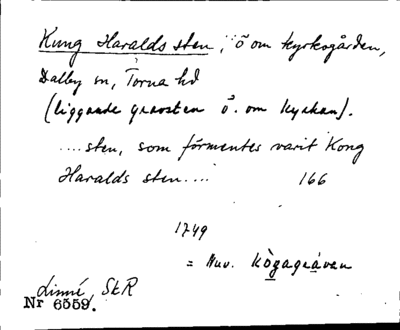 Kung Haralds sten, ö om kyrkogården,
Dalby sn, Torna hd
(liggande gravsten ö. om kyrkan).
....sten, som förmentes varit Kong
Haralds sten.... 166
1749
= Nuv. Kògagràven
Linné, SkR
Nr 6559.